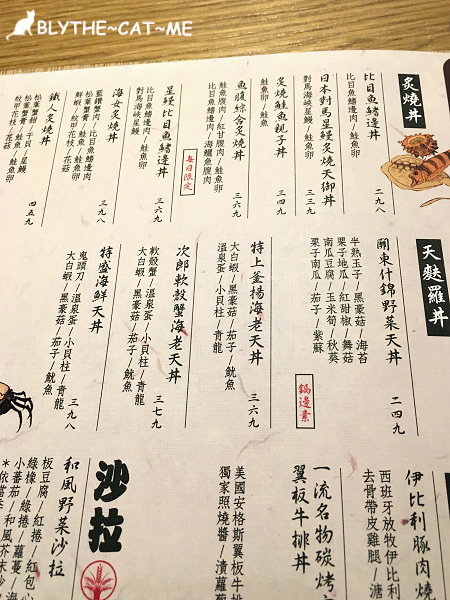 BLYTHE~CAT~ME
炙燒丼
比目魚鰭邊丼 二九八
日本對馬星鰻炙燒天御丼 三三九
對馬海峽星鰻/鮭魚卵
炙燒鮭魚親子丼 三四九
鮭魚卵/鮭魚
魚腹綜合炙燒丼 三六九
鮭魚腹肉/紅甘腹肉/鮭魚卵
比目魚鰭邊肉/海鱺魚腹肉
每日限定
星鰻比目魚鰭邊丼 三六九
比目魚鰭邊肉/鮭魚卵
對馬海峽星鰻
海女炙燒丼 三九八
藍鑽蟹肉/比目魚鰭邊肉
松葉蟹膏/鮭魚/鮭魚卵
鮮蝦/紋甲花枝/花菇
鐵人炙燒丼 四五九
松葉蟹鉗/干貝/星鰻
松葉蟹膏/鮭魚/鮭魚卵
紋甲花枝/花菇
天麩羅丼
關東什錦野菜天丼 二四九
半熟玉子/黑豪菇/海苔
栗子地瓜/紅甜椒/舞菇
南瓜豆腐/玉米筍/秋葵
栗子南瓜/茄子/紫蘇
鍋邊素
特上釜揚海老天丼 三六九
大白蝦/溫泉蛋/小貝柱/青龍
大白蝦/黑豪菇/茄子/魷魚
次郎軟殼蟹海老天丼 三七九
軟殼蟹/溫泉蛋/小貝柱/青龍
大白蝦/黑豪菇/茄子/魷魚
特盛海鮮天丼 三九八
鬼頭刀/溫泉蛋/小貝柱/青龍
大白蝦/黑豪菇/茄子/魷魚
伊比利豚肉燒
西班牙放牧伊比利
去骨帶皮雞腿/溏
一流名物碳烤
翼板牛排丼
美國安格斯翼板牛排
獨家照燒醬/漬蘿蔔
沙拉
和風野菜沙拉
板豆腐/紅捲/紅包心
綠橡/綠捲/蘿蔓
小蕃茄/和風芥末沙
*依當季